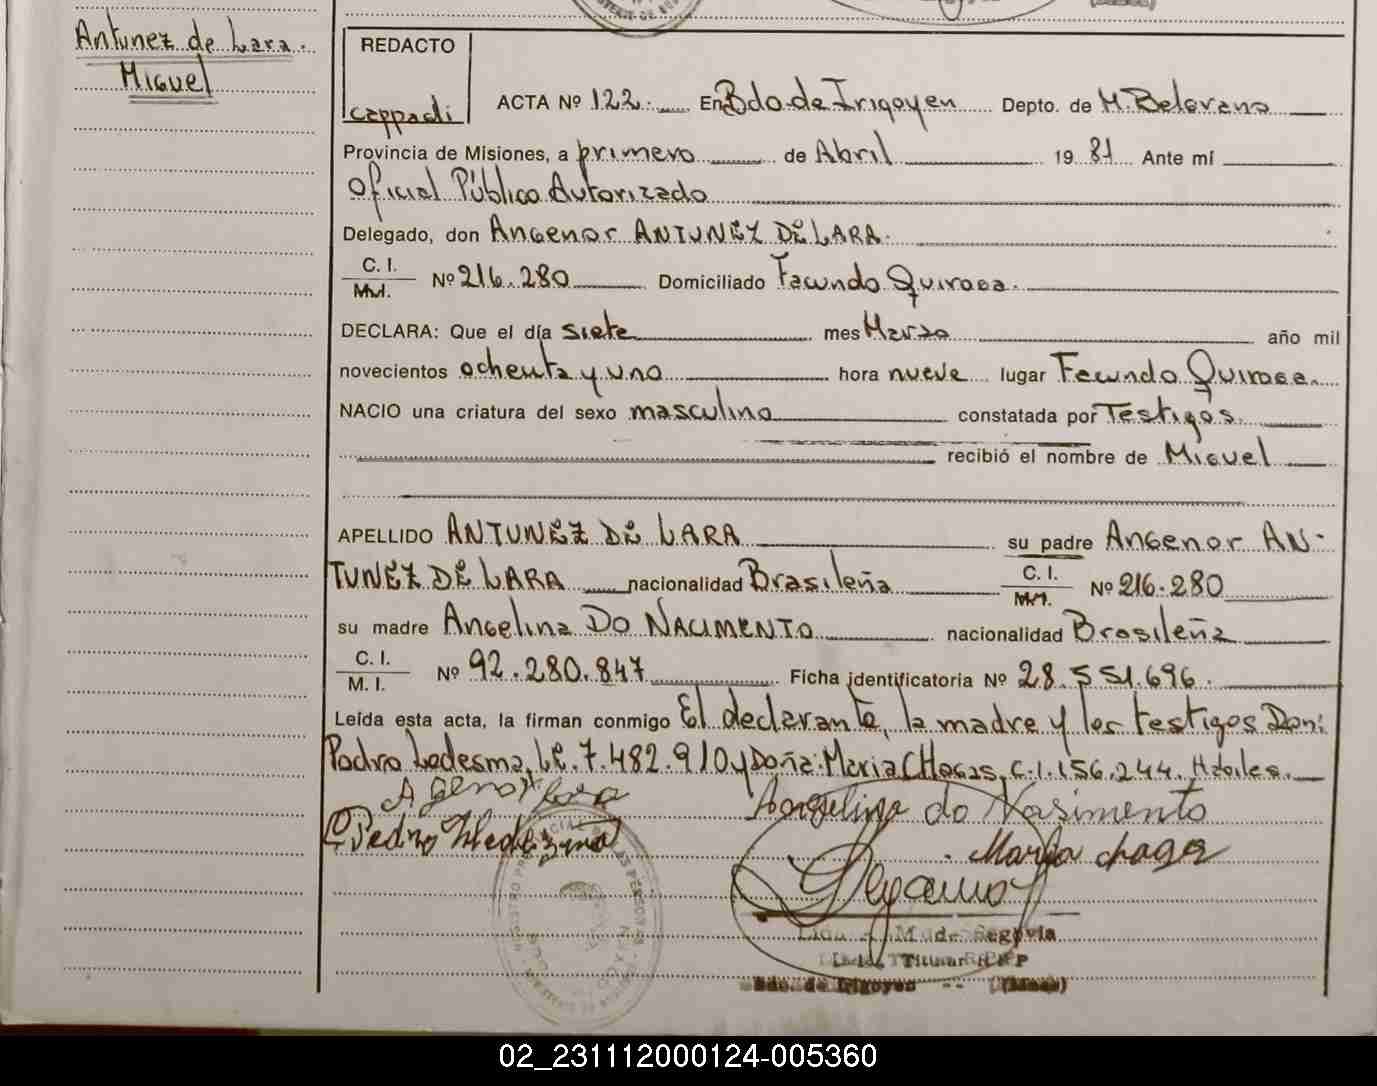 Antunez de Lara.
Miguel
REDACTO
cappadi
ACTA Nº 122. En Bdo. de Irigoyen Depto. de M. Belgrano
Provincia de Misiones, a primero de Abril 19 81 Ante mí
Oficial Público Autorizado
Delegado, don Angenor ANTUNEZ DE LARA.
C. I.
M.I. Nº 216.280 Domiciliado Facundo Quiroga.
DECLARA: Que el día siete mes Marzo año mil
novecientos ochenta y uno hora nueve lugar Facundo Quiroga.
NACIO una criatura del sexo masculino constatada por Testigos.
recibió el nombre de Miguel
APELLIDO ANTUNEZ DE LARA su padre Angenor AN-
TUNEZ DE LARA nacionalidad Brasileña C. I. M.I. Nº 216.280
su madre Angelina DO NACIMENTO nacionalidad Brasileña
C. I.
M. I. Nº 92.280.847 Ficha identificatoria Nº 28.551.696.
Leída esta acta, la firman conmigo El declarante, la madre y los testigos Don:
Pedro Ledesma, L.E. 7.482.910 y Doña: Maria CHagas, C.I. 156.244. Hábiles.
Angelina do Nasimento
Pedro Ledezma
Maria chagas
M. de Segovia
Titular
Bdo. de Irigoyen (Mnes)
02_231112000124-005360